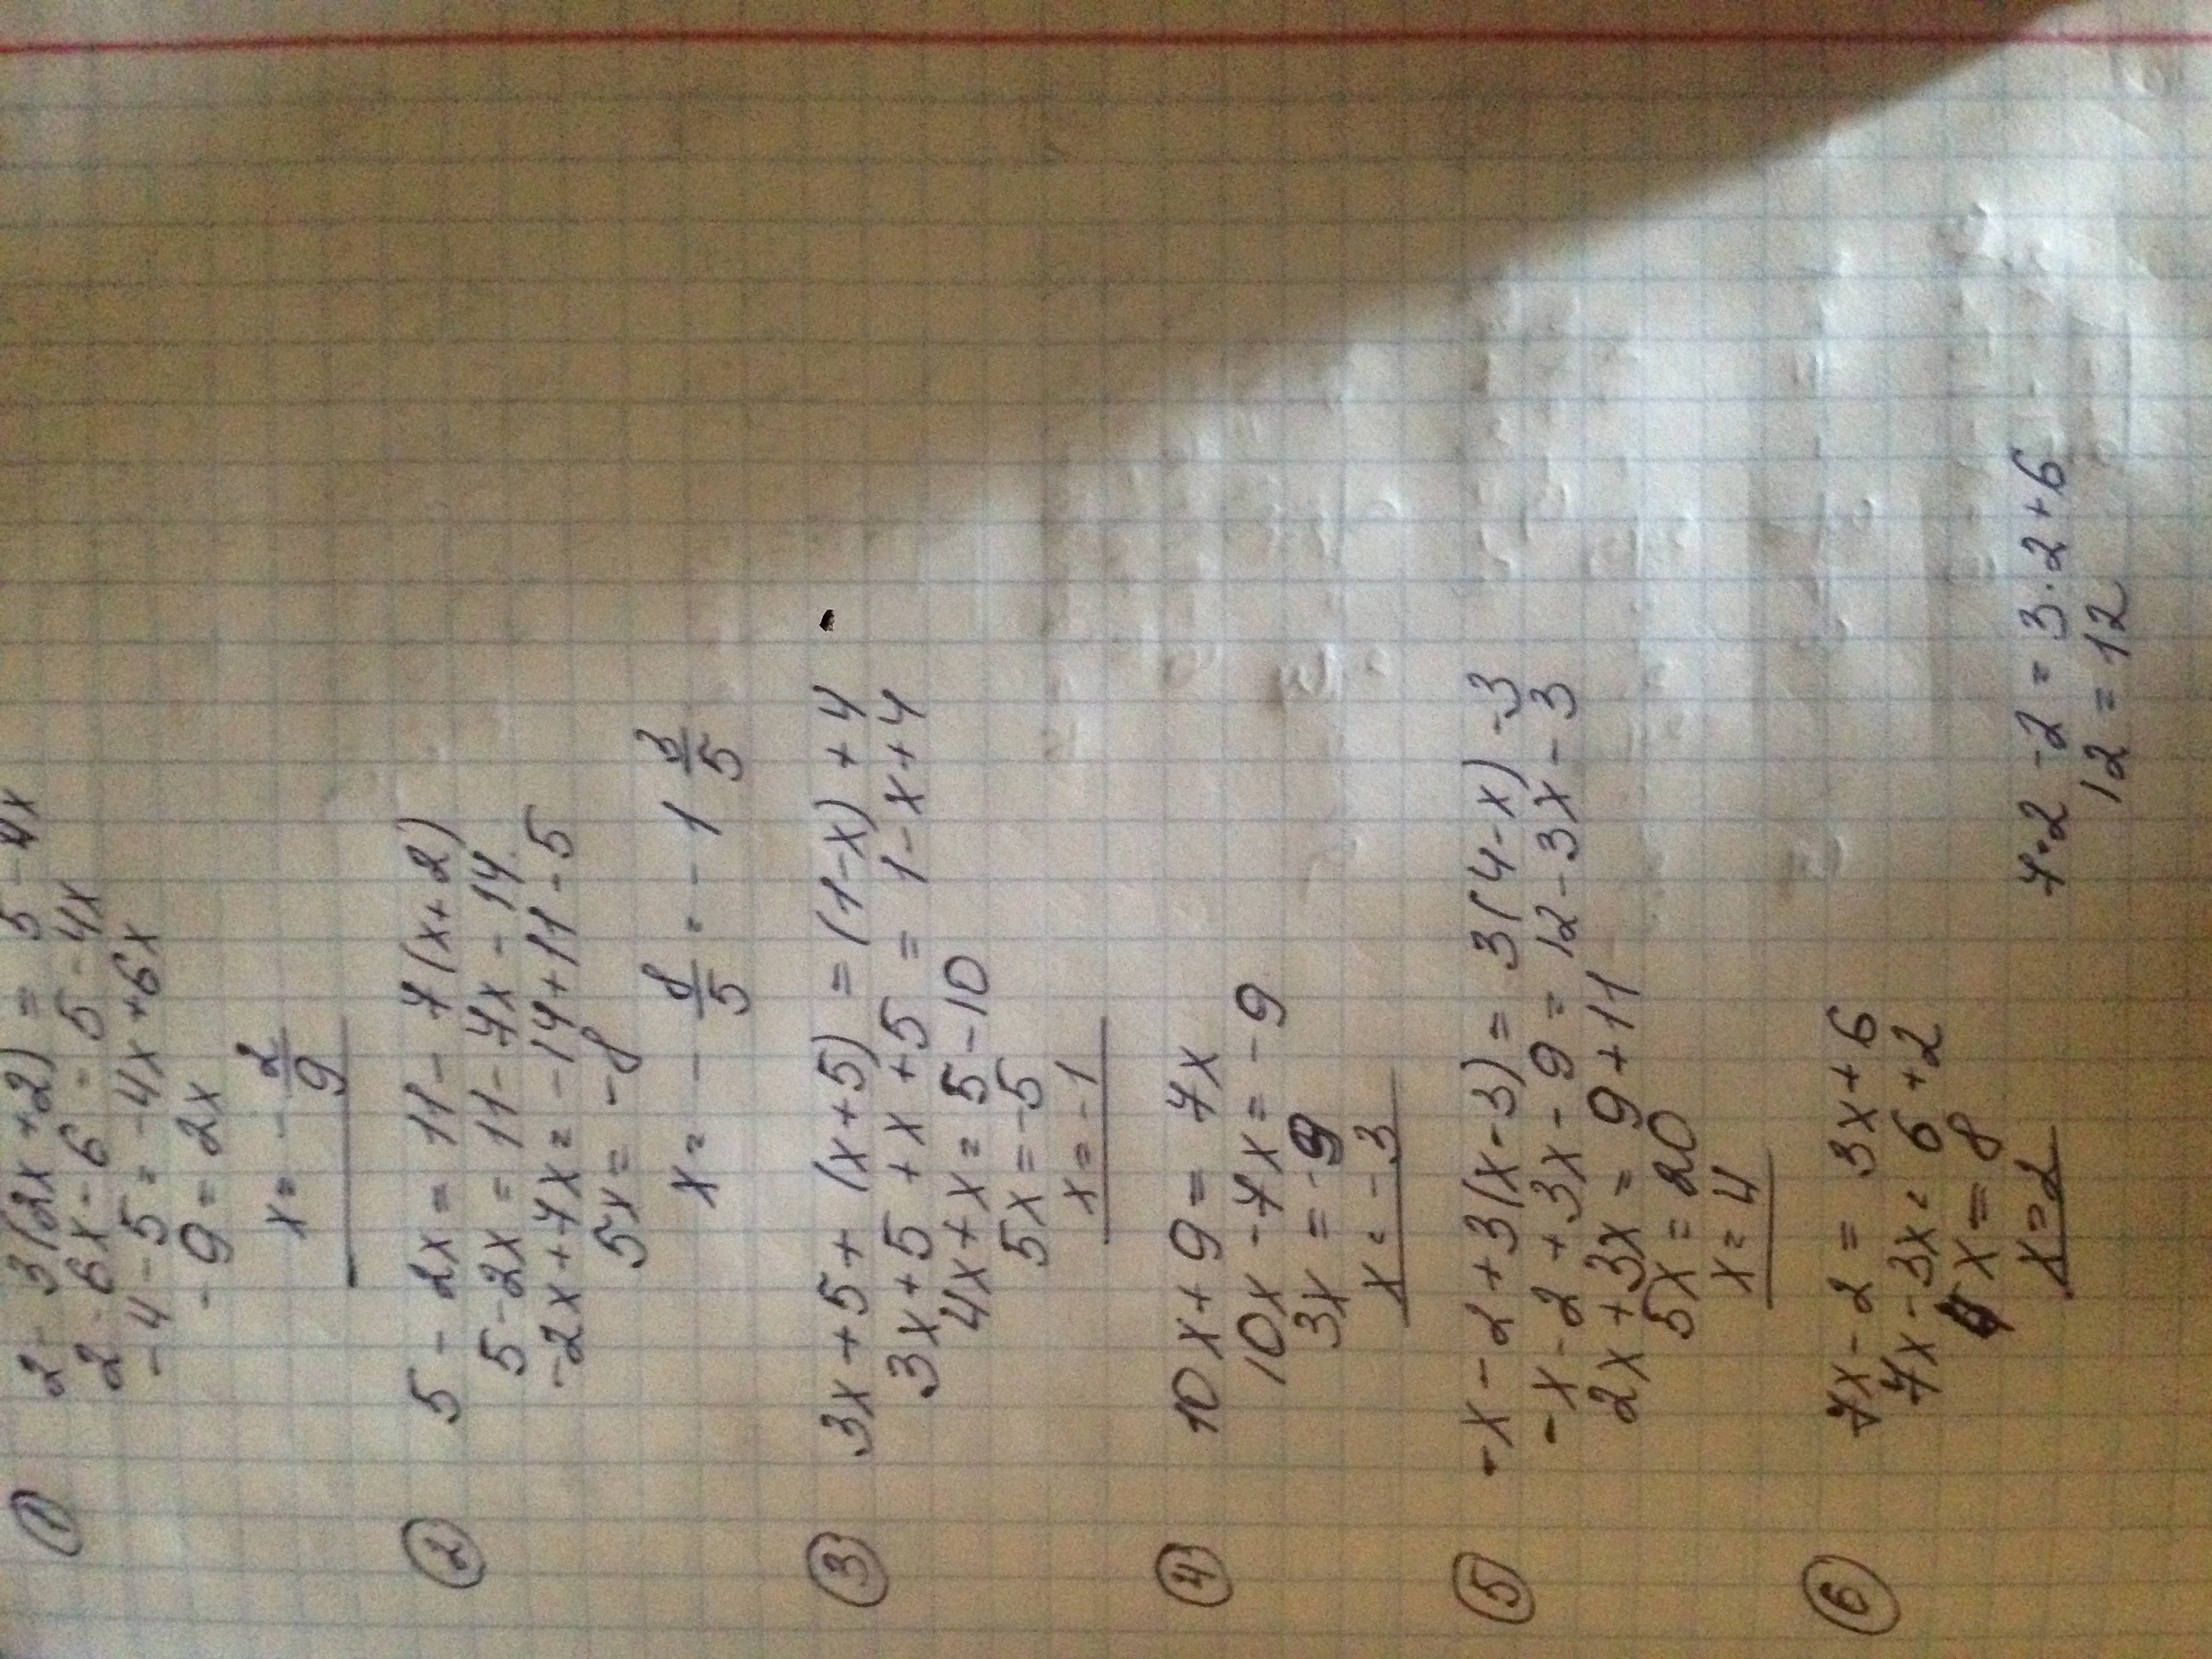 ① 2 - 3(2x+2) = 5 - 4x
2 - 6x - 6 = 5 - 4x
-4 - 5 = -4x + 6x
-9 = 2x
x = - 2/9
② 5 - 2x = 11 - 7(x+2)
5 - 2x = 11 - 7x - 14
-2x + 7x = -14 + 11 - 5
5x = -8
x = - 8/5 = - 1 3/5
③ 3x + 5 + (x+5) = (1-x) + 4
3x + 5 + x + 5 = 1 - x + 4
4x + x = 5 - 10
5x = -5
x = -1
④ 10x + 9 = 7x
10x - 7x = -9
3x = -9
x = -3
⑤ -x - 2 + 3(x-3) = 3(4-x) - 3
-x - 2 + 3x - 9 = 12 - 3x - 3
2x + 3x = 9 + 11
5x = 20
x = 4
⑥ 7x - 2 = 3x + 6
7x - 3x = 6 + 2
4x = 8
x = 2
7·2 - 2 = 3·2 + 6
12 = 12